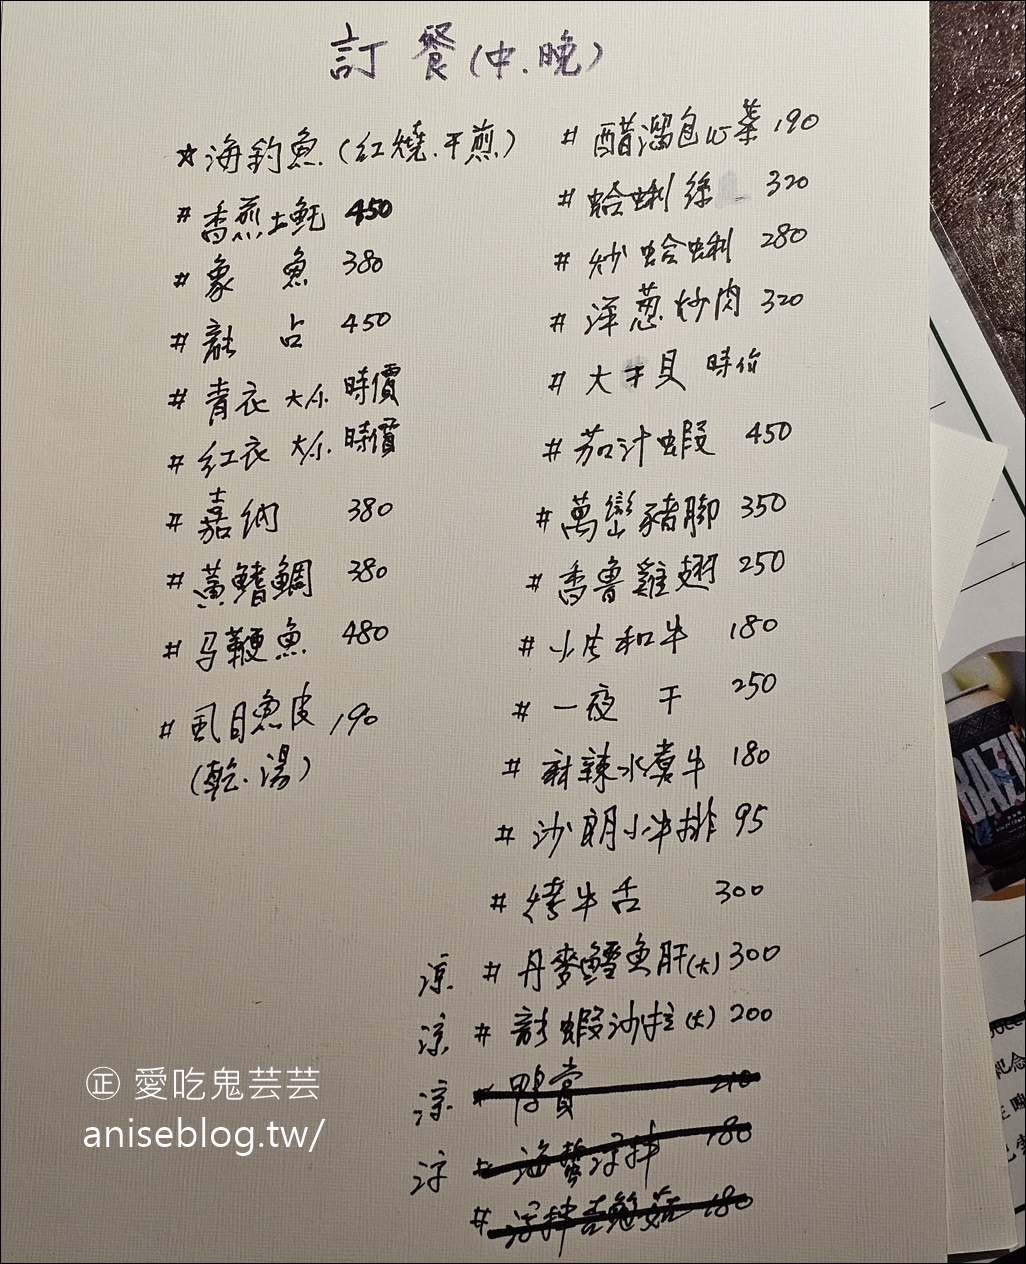 訂餐(中.晚)
☆海釣魚(紅燒.干煎)
#香煎土魠 450
#象 魚 380
#龍 占 450
#青衣 大小 時價
#紅衣 大小 時價
#嘉納 380
#黃鰭鯛 380
#马鞭魚 480
#虱目魚皮 190
(乾.湯)
#醋溜包心菜 190
#蛤蜊絲 320
#炒蛤蜊 280
#洋蔥炒肉 320
#大干貝 時价
#茄汁蝦 450
#萬巒豬腳 350
#香魯雞翅 250
#小片和牛 180
#一夜 干 250
#麻辣水煮牛 180
#沙朗小牛排 95
#烤牛舌 300
涼 #丹麥鱈魚肝(大) 300
涼 #龍蝦沙拉(大) 200
涼 #鴨賞 210
涼 #海蜇涼拌 180
#涼拌杏鮑菇 180
㊣ 愛吃鬼芸芸
aniseblog.tw/
BAZI